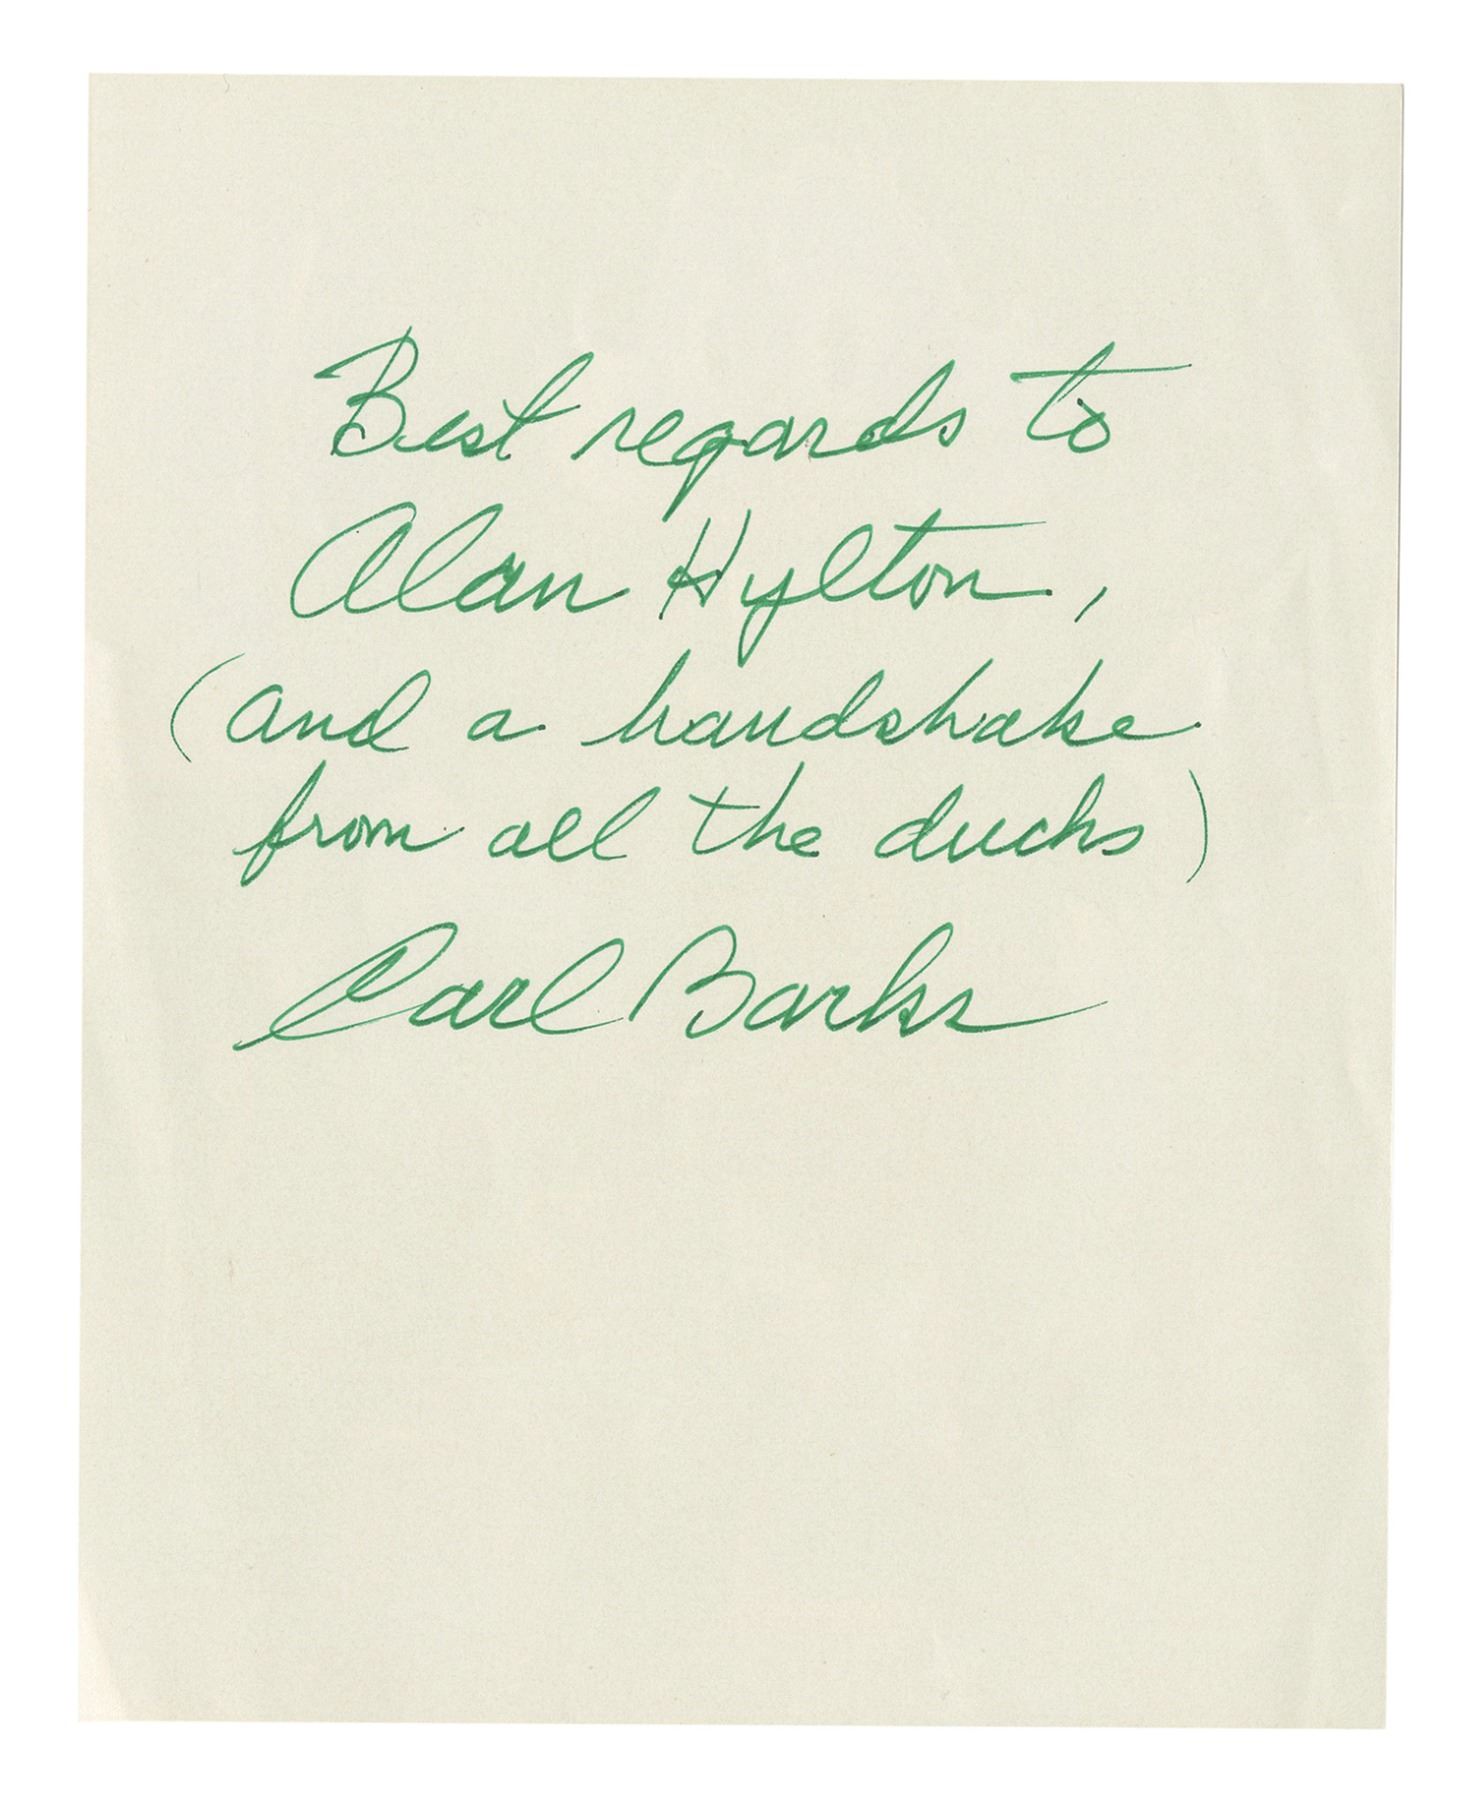 Best regards to
Alan Hylton,
(and a handshake
from all the ducks)
Carl Barks